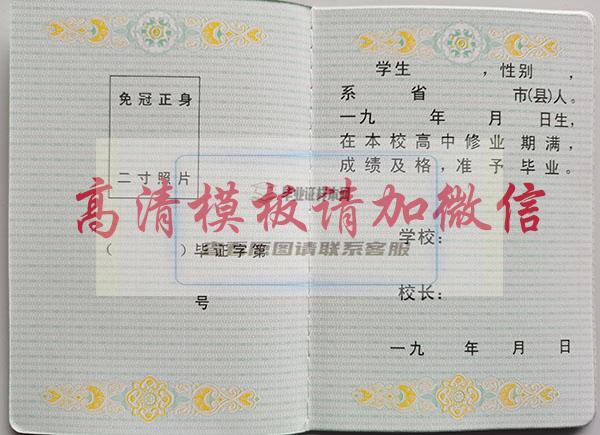 免冠正身
二寸照片
（ ）毕证字第
号
学生 ，性别 ，
系 省 市(县)人。
一九 年 月 日生，
在本校高中修业 期满，
成绩及格，准 予 毕业。
学校：
校长：
一九 年 月 日
高清模板请加微信
图请联系客服